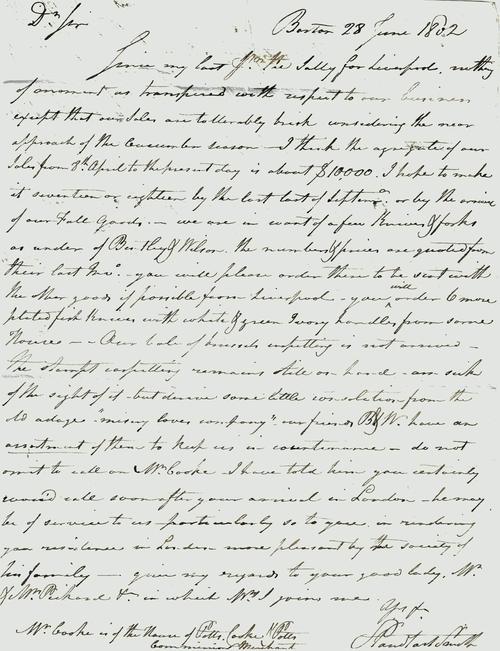 Dr Sir
Boston 28 June 1802
Since my last the Sally for Liverpool, nothing
of moment as transpired with respect to our business
except that our Sales are tollerably brisk considering the near
approach of the Cucumber season — I think the agregate of our
Sales from 8th April to the present day is about $10,000. I hope to make
it seventeen or eighteen by the last of Septemr or by the arrival
of our Fall Goods — we are in want of a few Knives & forks
as under of Bentley & Wilson. the numbers & prices are quoted from
their last Invo. — you will please order them to be sent with
the other goods if possible from Liverpool — you will order 6 more
plated fish Knives with white & green Ivory handles from same
House — Our bale of brussels carpetting is not arrived —
the carpetting remains still on hand — am sick
of the sight of it but derive some little consolation from the
old adage "misery loves company" our friends B & W. have an
assortment of them to keep us in countenance — do not
omit to call on Mr Cooke I have told him you certainly
would call soon after your arrival in London — he may
be of service to us particularly so to you in rendering
your residence in London more pleasant by the society of
his family — give my regards to your good lady, Mr
& Mrs & in which Mrs I joins me
Mr Cooke is of the House of Potts, Cooke & Potts
Commission Merchants